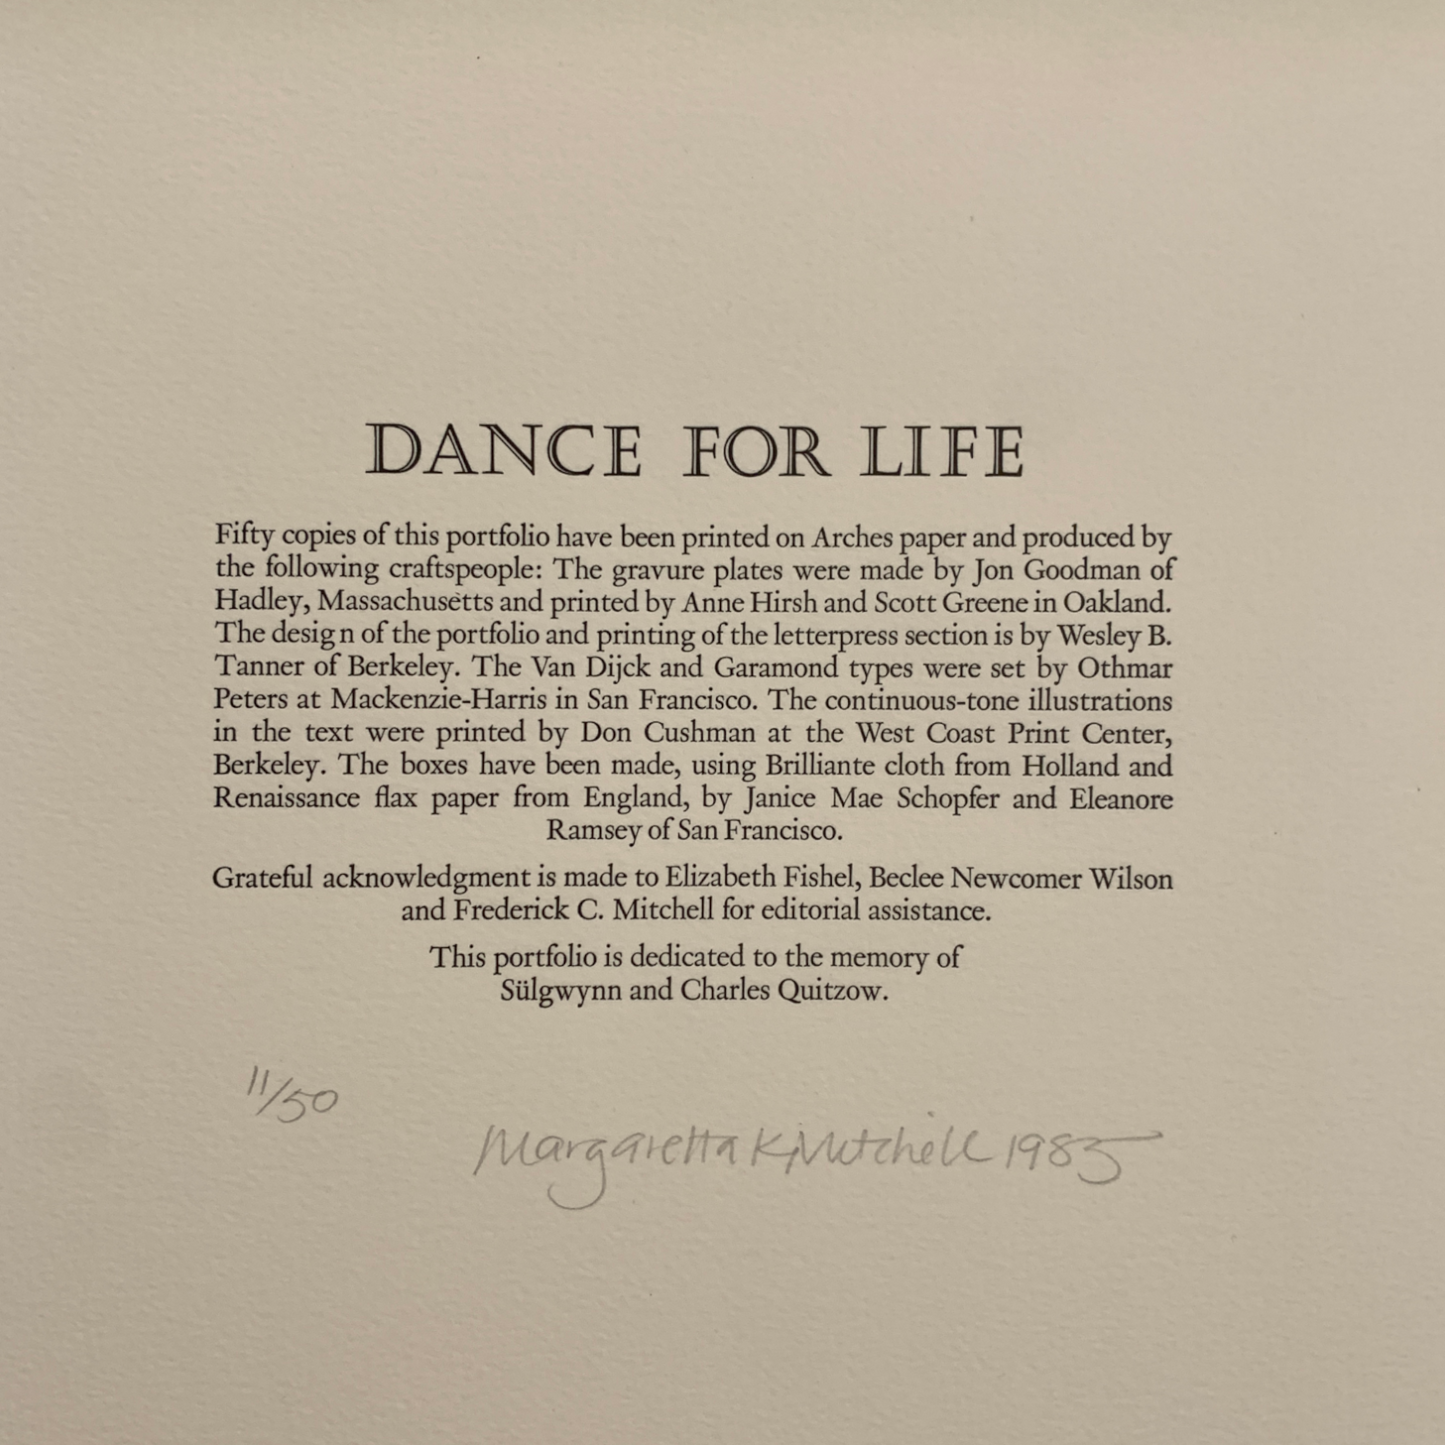 DANCE FOR LIFE
Fifty copies of this portfolio have been printed on Arches paper and produced by
the following craftspeople: The gravure plates were made by Jon Goodman of
Hadley, Massachusetts and printed by Anne Hirsh and Scott Greene in Oakland.
The design of the portfolio and printing of the letterpress section is by Wesley B.
Tanner of Berkeley. The Van Dijck and Garamond types were set by Othmar
Peters at Mackenzie-Harris in San Francisco. The continuous-tone illustrations
in the text were printed by Don Cushman at the West Coast Print Center,
Berkeley. The boxes have been made, using Brilliante cloth from Holland and
Renaissance flax paper from England, by Janice Mae Schopfer and Eleanore
Ramsey of San Francisco.
Grateful acknowledgment is made to Elizabeth Fishel, Beclee Newcomer Wilson
and Frederick C. Mitchell for editorial assistance.
This portfolio is dedicated to the memory of
Sülgwynn and Charles Quitzow.
11/50
Margaretta K. Mitchell 1985